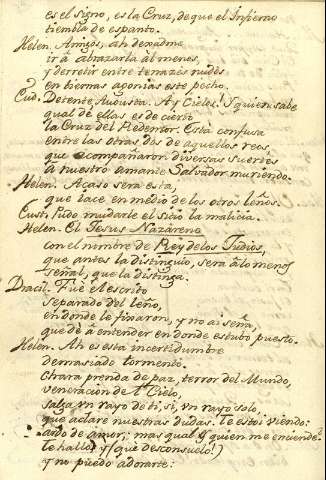 es el signo, es la Cruz, de que el Infierno
tiembla de espanto.
Helen. Amigos, ah! dexadme
ir á abrazarla al menos,
y derretir entre tenazes nudos
en tiernas agonias este pecho.
Detente Augusta. Ay Cielos! y quien sabe
qual de ellas es de cierto
la Cruz del Redentor. Está confusa
entre las otras dos de aquellos reos,
que acompañaron diversas suertes
a nuestro amante Salvador muriendo.
Helen. Acaso será esta,
que iace en medio de los otros leños.
Eust. Pudo mudarle el sitio la malicia.
Helen. El Jesus Nazareno
con el nombre de Rey de los Judios,
que antes la distinguio, será á lo menos
señal, que la distinga.
Dracil. Fué el escrito
separado del leño,
en donde le finaron, y no ai seña,
que dé á entender en donde estubo puesto.
Helen. Ah es esta incertidumbre
demasiado tormento.
Chara prenda de paz, terror del Mundo,
veneracion del Cielo,
salga vn rayo de ti, si, vn rayo solo
que aclare nuestras dudas. te estoi viendo:
ardo de amor; mas qual y quien me enciende
te hallo, y (que desconsuelo!)
y no puedo adorarte: